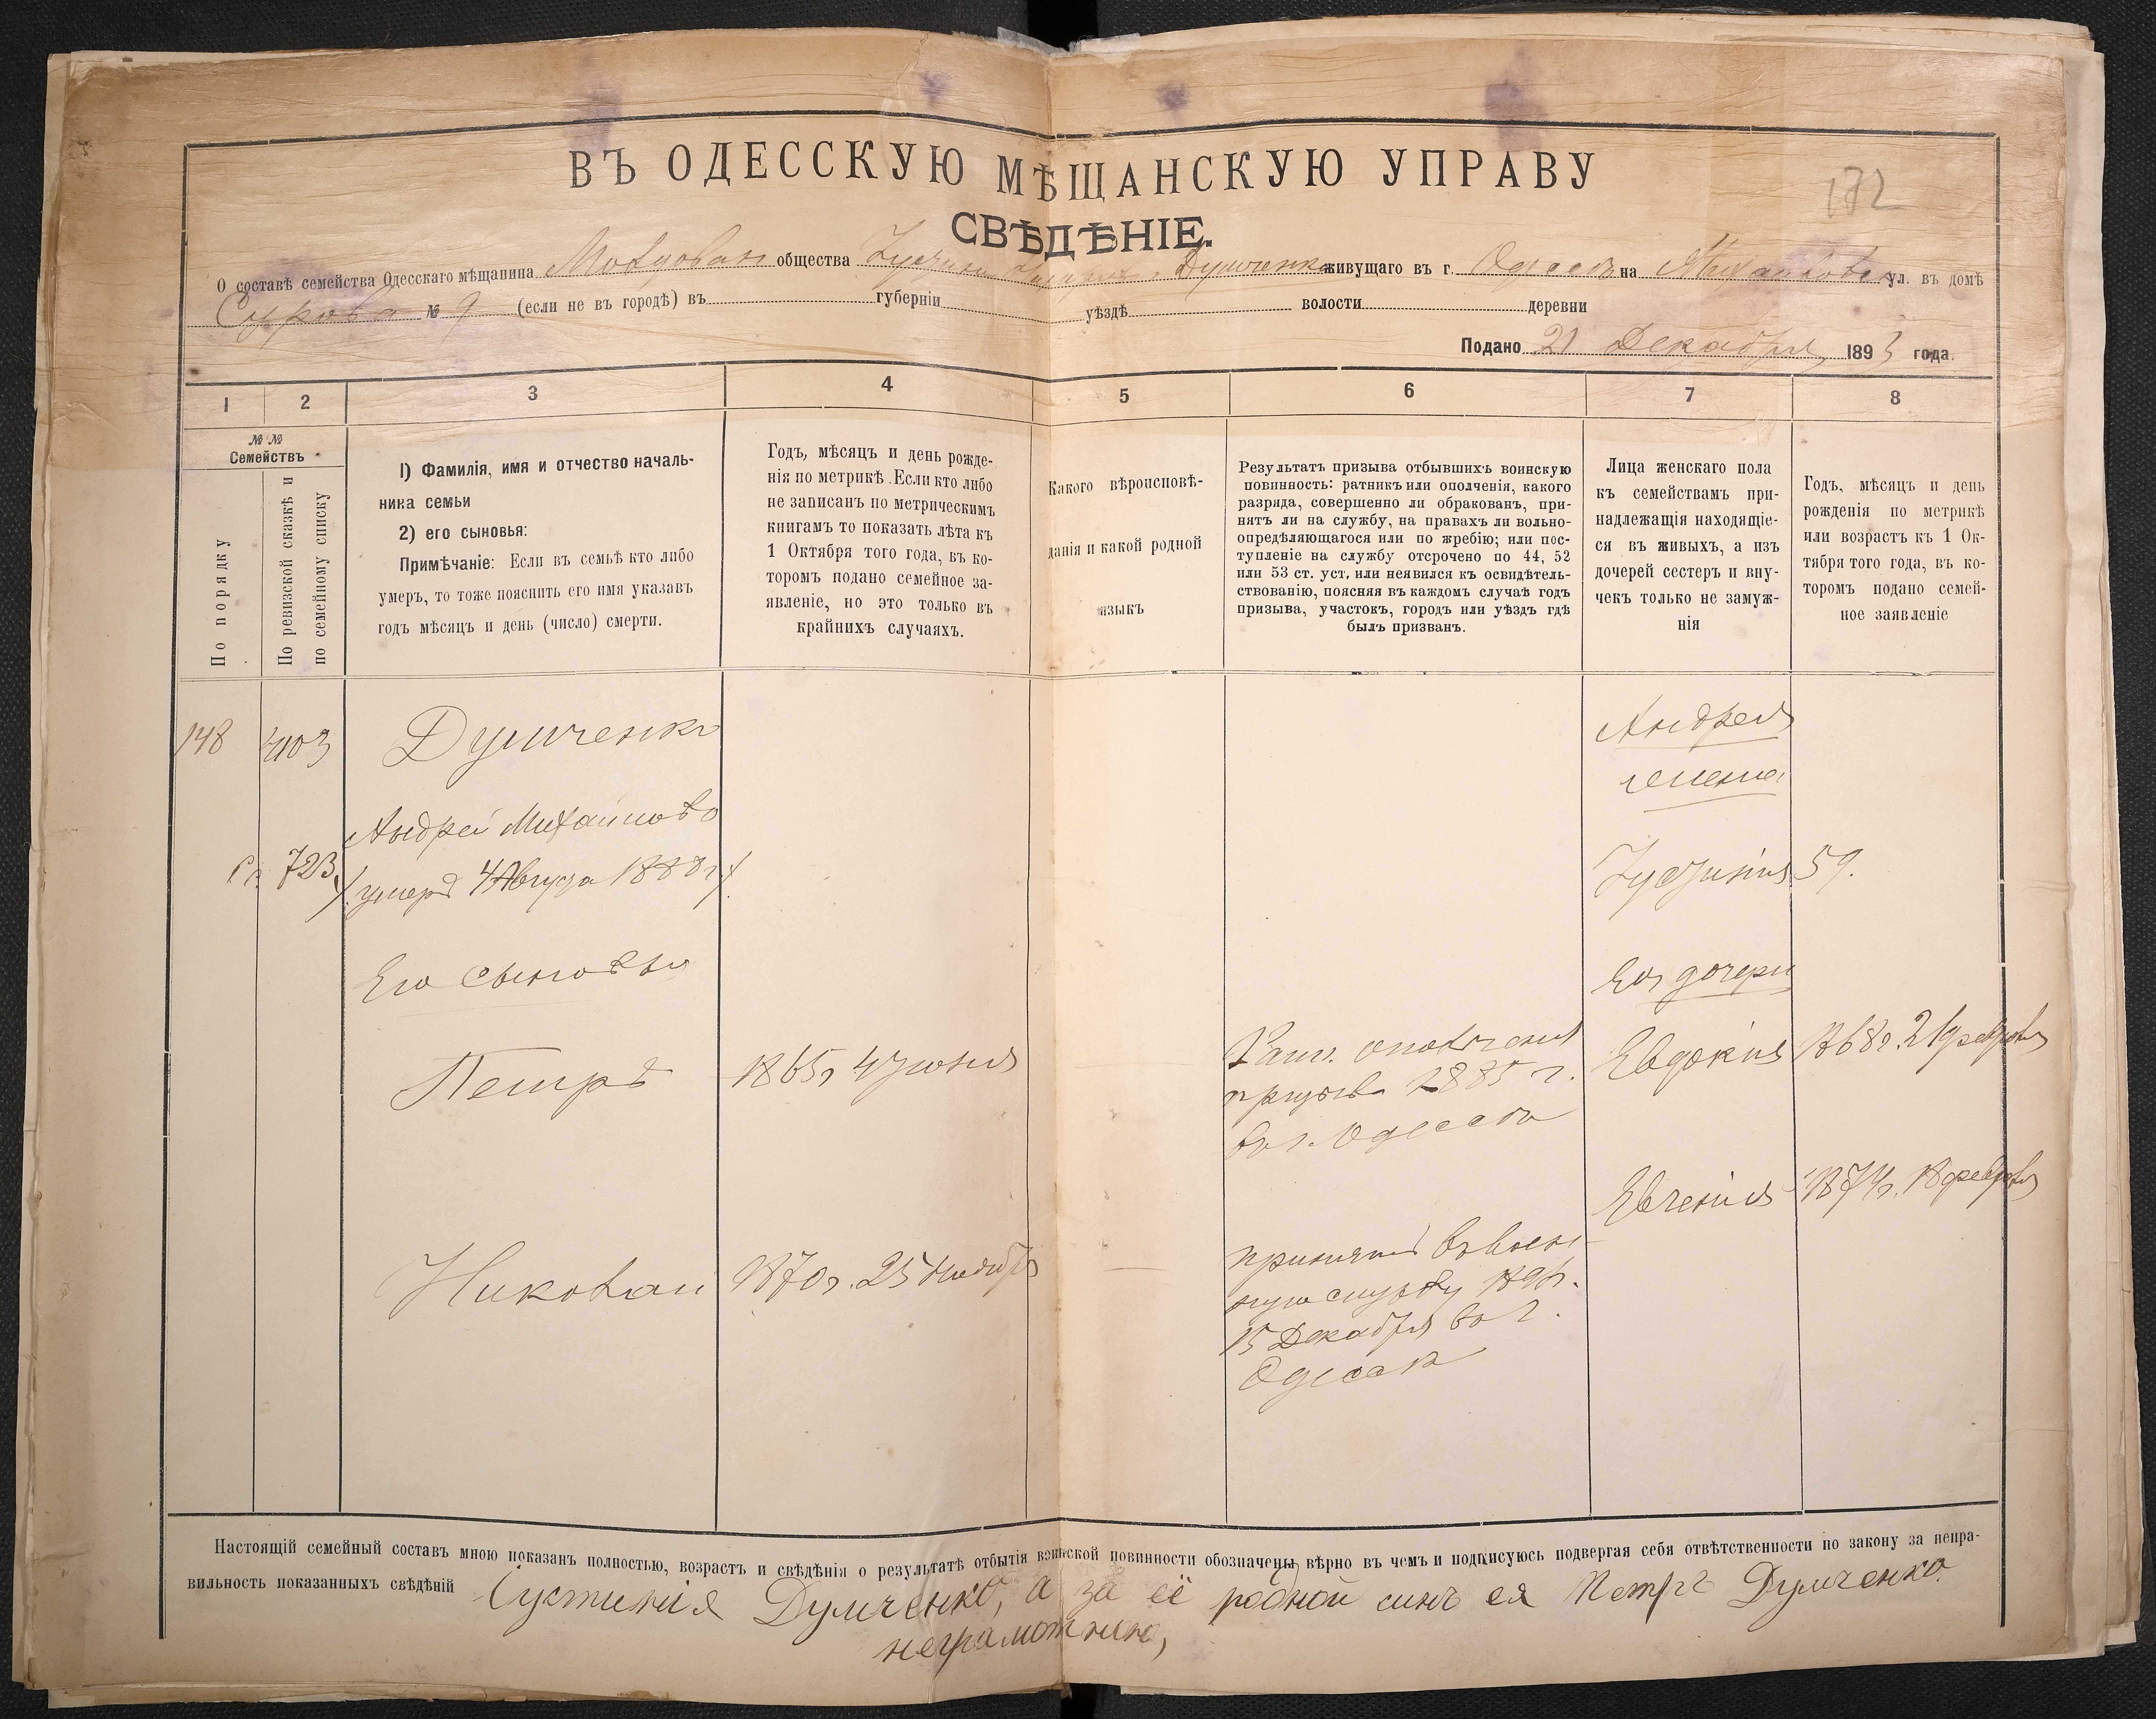 172
ВЪ ОДЕССКУЮ МѢЩАНСКУЮ УПРАВУ
СВѢДѢНІЕ.
О составѣ семейства Одесскаго мѣщанина общества Думченко живущаго въ г. Одессѣ на ул. въ домѣ
№ 9 (если не въ городѣ) въ губерніи уѣздѣ волости деревни
Подано 21 Декабря 1893 года.
1 2 3 4 5 6 7 8
№ №
Семействъ
По порядку
По ревизской сказкѣ и
по семейному списку
1) Фамилія, имя и отчество началь-
ника семьи
2) его сыновья:
Примѣчаніе: Если въ семьѣ кто либо
умеръ, то тоже пояснить его имя указавъ
годъ мѣсяцъ и день (число) смерти.
Годъ, мѣсяцъ и день рожде-
нія по метрикѣ. Если кто либо
не записанъ по метрическимъ
книгамъ то показать лѣта къ
1 Октября того года, въ ко-
торомъ подано семейное за-
явленіе, но это только въ
крайнихъ случаяхъ.
Какого вѣроисповѣ-
данія и какой родной
языкъ
Результатъ призыва отбывшихъ воинскую
повинность: ратникъ или ополченія, какого
разряда, совершенно ли обракованъ, при-
нятъ ли на службу, на правахъ ли вольно-
опредѣляющагося или по жребію; или пос-
тупленіе на службу отсрочено по 44, 52
или 53 ст. уст. или неявился къ освидѣтель-
ствованію, поясняя въ каждомъ случаѣ годъ
призыва, участокъ, городъ или уѣздъ гдѣ
былъ призванъ.
Лица женскаго пола
къ семействамъ при-
надлежащія находящіе-
ся въ живыхъ, а изъ
дочерей сестеръ и вну-
чекъ только не замуж-
нія
Годъ, мѣсяцъ и день
рожденія по метрикѣ
или возрастъ къ 1 Ок-
тября того года, въ ко-
торомъ подано семей-
ное заявленіе
148 Думченко
Андрея
жена
Андрей Михайловъ
723
умеръ 4 Августа 1888 г.
Густинія 59.
Его сыновья
Его дочери
Петръ 1865 г. 4 Іюня
Рат. ополченія
призыва 1885 г.
въ г. Одессѣ
Евдокія 1868 г. 21 февраля
Евгенія 1874 г. 18 февраля
Николай 1870 г. 25 Ноября
принятъ въ воен-
ную службу
15 Декабря въ г.
Одессѣ
Настоящій семейный составъ мною показанъ полностью, возрастъ и свѣдѣнія о результатѣ отбытія воинской повинности обозначены вѣрно въ чемъ и подписуюсь подвергая себя отвѣтственности по закону за непра-
вильность показанныхъ свѣдѣній Іустинія Думченко, а за её родной синъ ея Петръ Думченко
неграмотную,